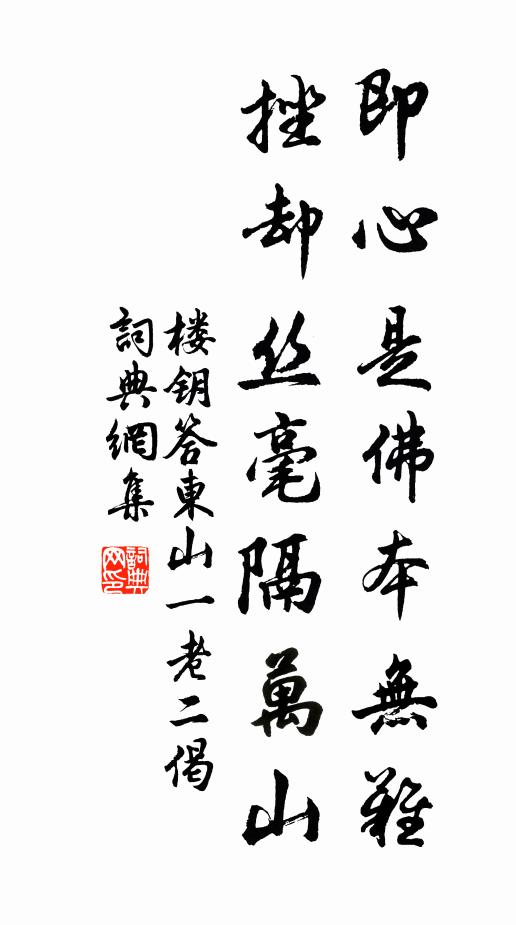 即心是佛本無難
挫却丝毫隔萬山
楼钥答東山一老二偈
詞典網集
詞典网印